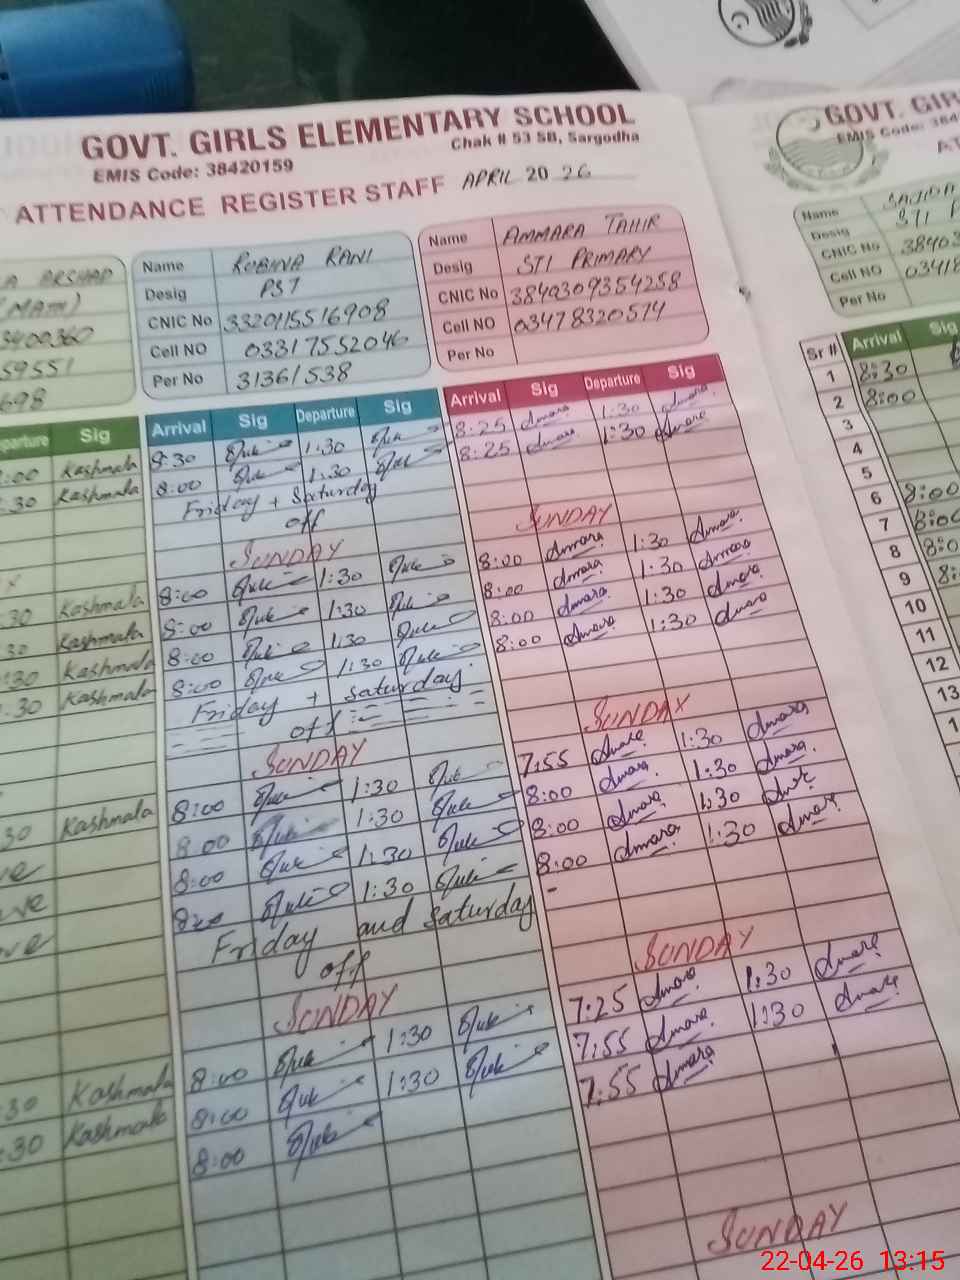 GOVT. GIRLS ELEMENTARY SCHOOL
Chak # 53 SB, Sargodha
EMIS Code: 38420159
ATTENDANCE REGISTER STAFF APRIL 20 26
A ARSHAD
(MATH)
3400360
59551
698
Name ROBINA RANI
Desig PST
CNIC No 3320115516908
Cell NO 03317552046
Per No 31361538
Name AMMARA TAHIR
Desig STI PRIMARY
CNIC No 3840309354258
Cell NO 03478320574
Per No
parture Sig
:00 Kashmala
:30 Kashmala
:30 Kashmala
30 Kashmala
:30 Kashmala
.30 Kashmala
30 Kashmala
ve
ve
ve
:30 Kashmala
:30 Kashmala
Arrival Sig Departure Sig
8:30 1:30
8:00 1:30
Friday + Saturday
off
SUNDAY
8:00 1:30
8:00 1:30
8:00 1:30
8:00 1:30
Friday + Saturday
off
SUNDAY
8:00 1:30
8:00 1:30
8:00 1:30
8:00 1:30
Friday and Saturday
off
SUNDAY
8:00 1:30
8:00 1:30
8:00
Arrival Sig Departure Sig
8:25 Amara 1:30 Amara
8:25 Amara 1:30 Amara
SUNDAY
8:00 Amara 1:30 Amara
8:00 Amara 1:30 Amara
8:00 Amara 1:30 Amara
8:00 Amara 1:30 Amara
SUNDAY
7:55 Amara 1:30 Amara
8:00 Amara 1:30 Amara
8:00 Amara 1:30 Amara
8:00 Amara 1:30 Amara
-
SUNDAY
7:25 Amara 1:30 Amara
7:55 Amara 1:30 Amara
7:55 Amara
SUNDAY
GOVT. GIR
EMIS Code: 384
AT
Name SAJIDA
Desig STI P
CNIC No 38403
Cell NO 03418
Per No
Sr # Arrival Sig
1 8:30
2 8:00
3
4
5
6 8:00
7 8:00
8 8:0
9 8:
10
11
12
13
1
22-04-26 13:15